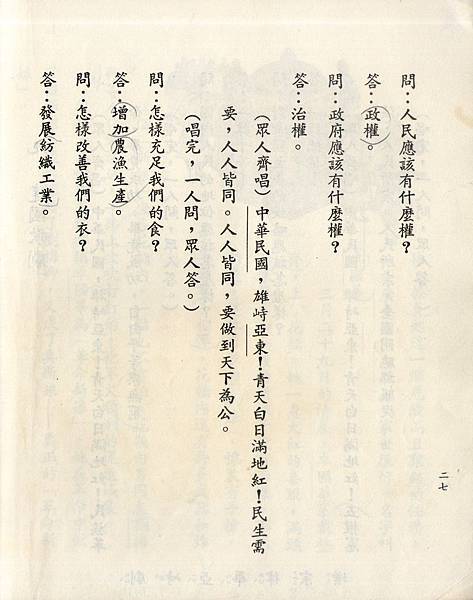 問：人民應該有什麼權？
答：政權。
問：政府應該有什麼權？
答：治權。
（眾人齊唱）中華民國，雄峙亞東！青天白日滿地紅！民生需
要，人人皆同。人人皆同，要做到天下為公。
（唱完，一人問，眾人答。）
問：怎樣充足我們的食？
答：增加農漁生產。
問：怎樣改善我們的衣？
答：發展紡織工業。
二七